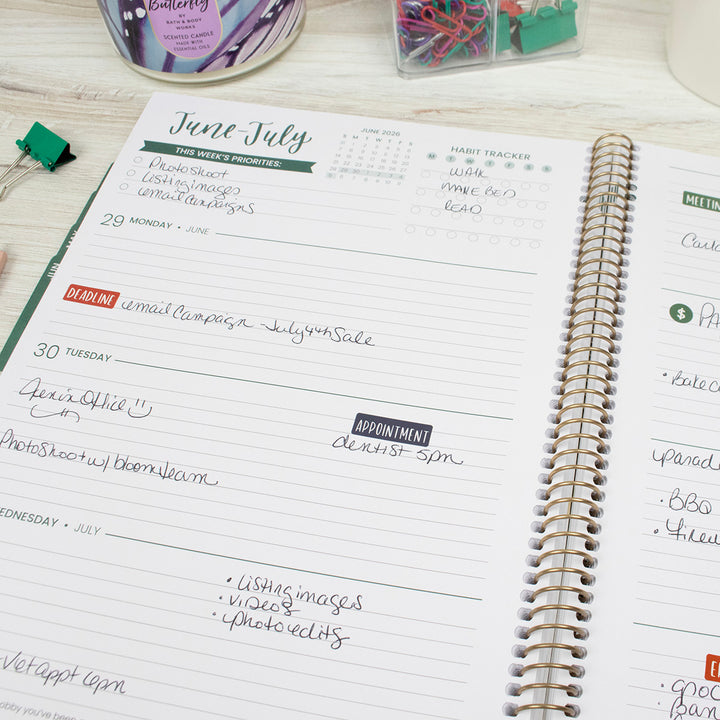 Butterfly
BY
BATH & BODY
WORKS
SCENTED CANDLE
MADE WITH
ESSENTIAL OILS
June-July
THIS WEEK'S PRIORITIES:
Photoshoot
listing images
email campaigns
JUNE 2026
S M T W T F S
HABIT TRACKER
M T W T F S S
WALK
MAKE BED
READ
29 MONDAY • JUNE
DEADLINE email Campaign - July 4th Sale
30 TUESDAY
Jen in Office
APPOINTMENT
dentist 5pm
Photoshoot w/ bloom team
WEDNESDAY • JULY
• listing images
• videos
• photo edits
Vet appt 6pm
MAY
JUN
MEETIN
$
• BBQ